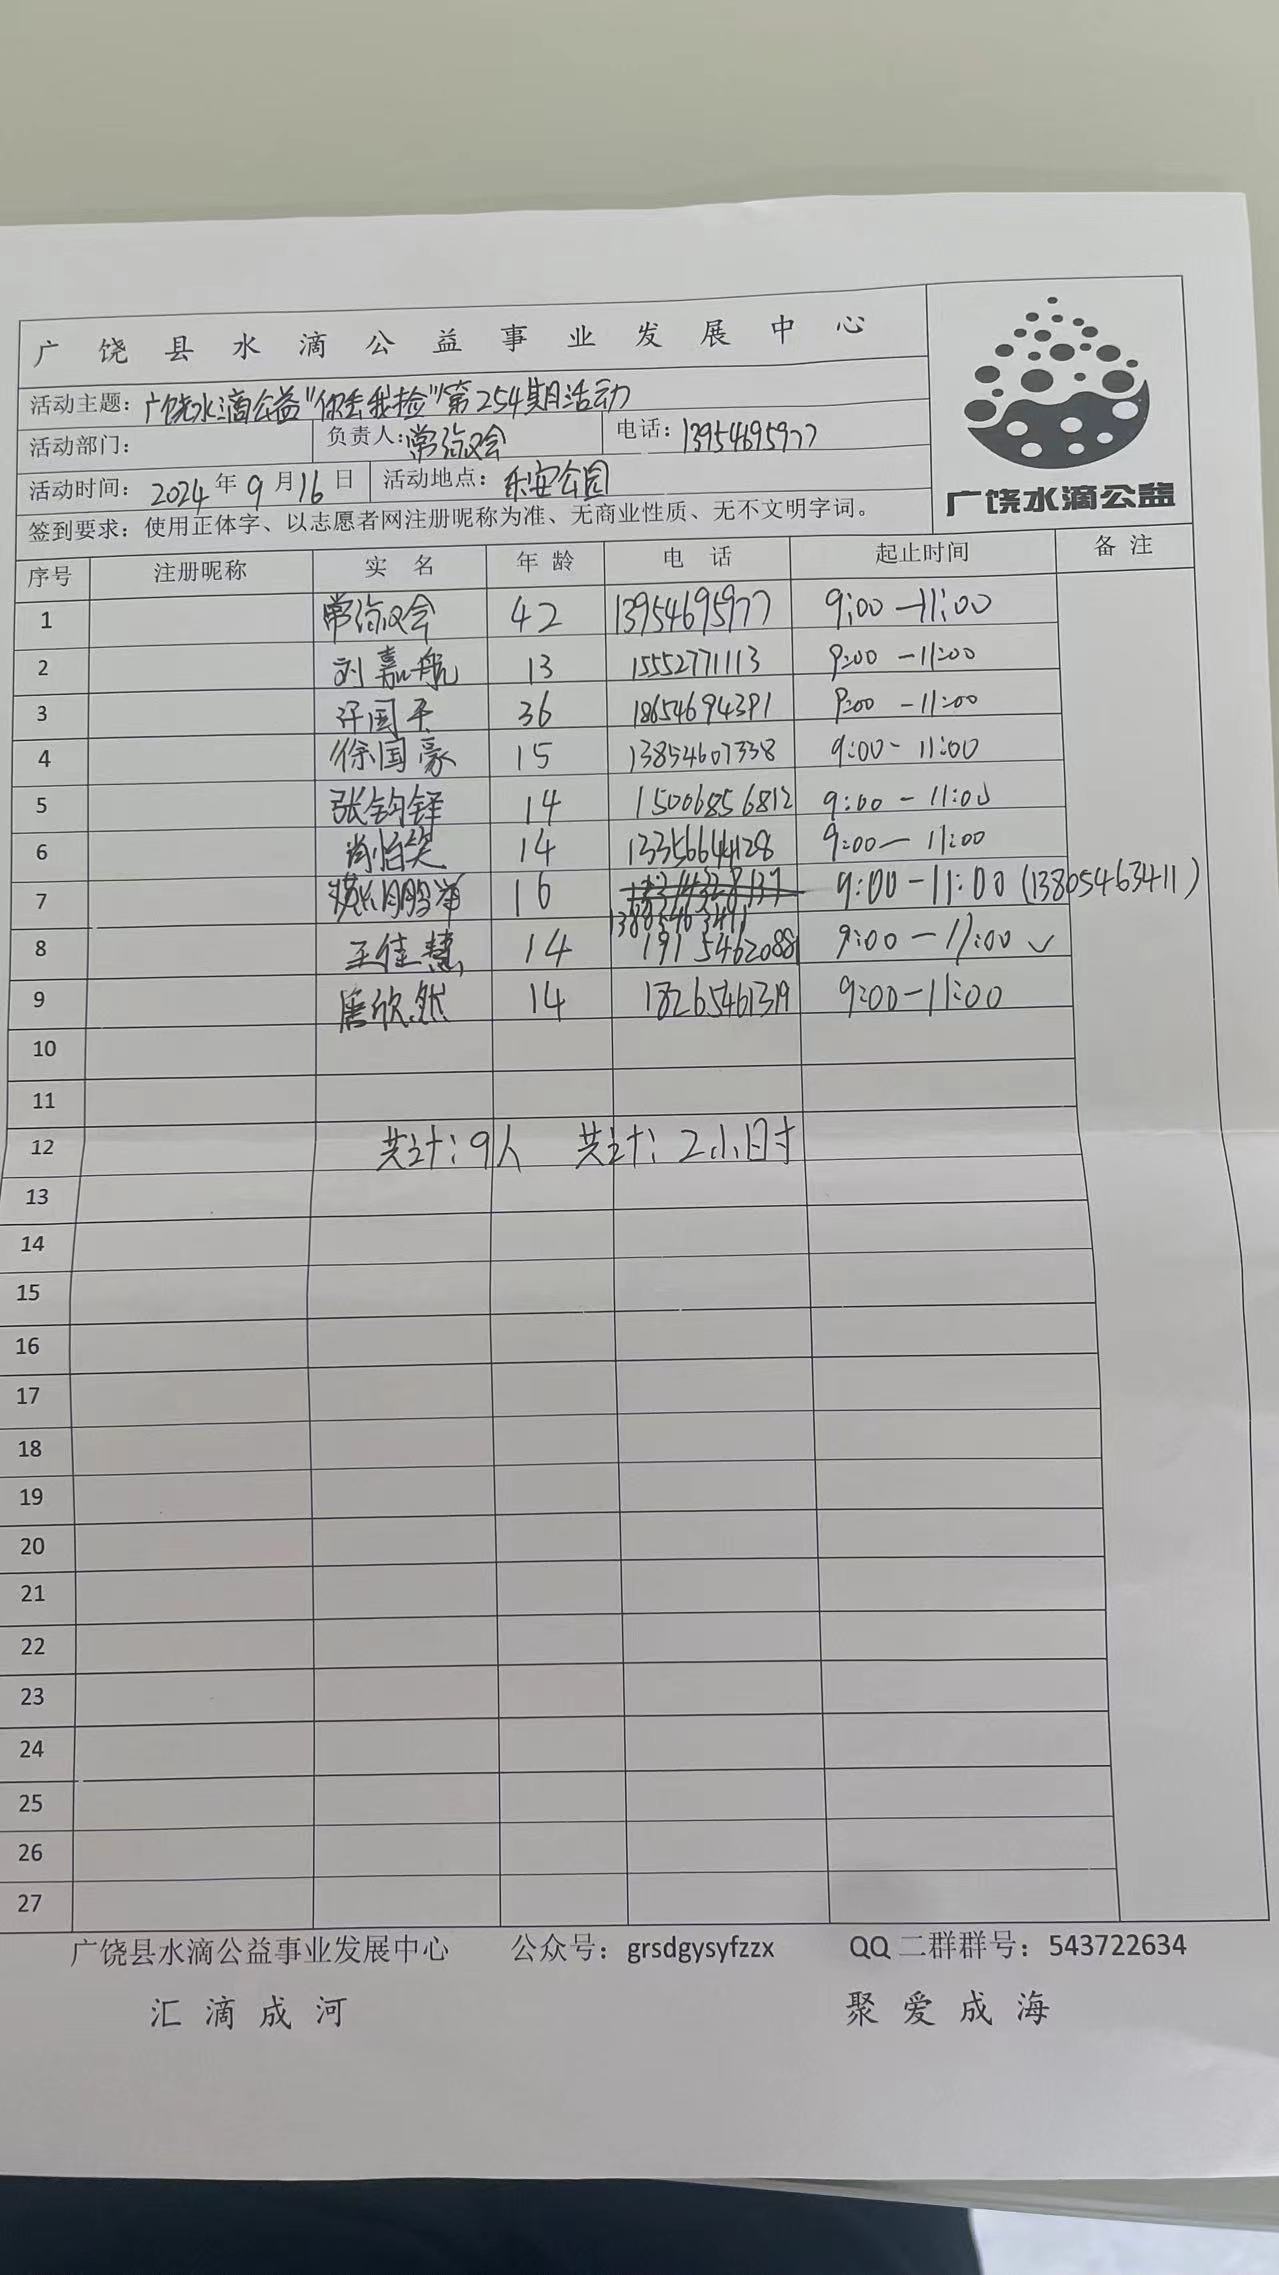 广饶县水滴公益事业发展中心
活动主题：广饶水滴公益"你丢我捡"第254期活动
活动部门： 负责人：常 会 电话：13954695977
活动时间：2024年9月16日 活动地点：乐安公园
签到要求：使用正体字、以志愿者网注册昵称为准、无商业性质、无不文明字词。
广饶水滴公益
序号 注册昵称 实 名 年 龄 电 话 起止时间 备 注
1 常 会 42 13954695977 9:00-11:00
2 刘嘉航 13 15552771113 9:00-11:00
3 许国平 36 18654694391 9:00-11:00
4 徐国豪 15 13854607338 9:00-11:00
5 张钧铎 14 15006856812 9:00-11:00
6 14 13356644128 9:00-11:00
7 16 9:00-11:00 (13805463411)
8 王佳慧 14 19154620881 9:00-11:00
9 唐欣然 14 13265461319 9:00-11:00
10
11
12 共计：9人 共计：2小时
13
14
15
16
17
18
19
20
21
22
23
24
25
26
27
广饶县水滴公益事业发展中心 公众号：grsdgysyfzzx QQ二群群号：543722634
汇滴成河 聚爱成海